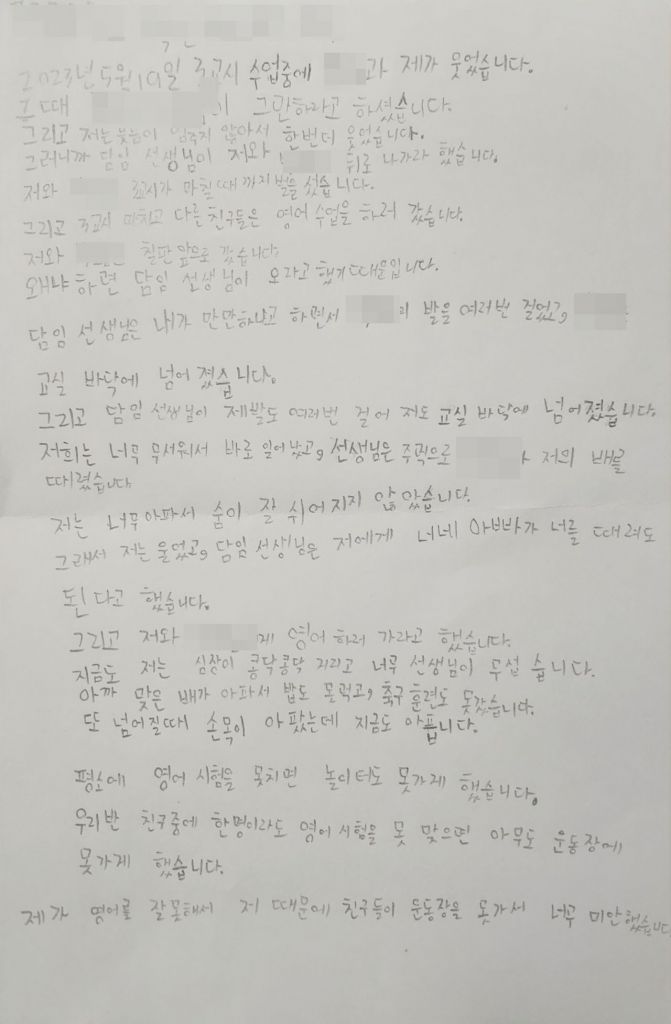 2023년 5월 19일 3교시 수업중에 과 제가 웃었습니다.
그때 그만하라고 하셨습니다.
그리고 저는 웃음이 안았서 한번더 웃었습니다.
그러니까 담임 선생님이 저와 뒤로 나가라 했습니다.
저와 3교시가 마칠때까지 벌을 섰습니다.
그리고 3교시 마치고 다른 친구들은 영어 수업을 하러 갔습니다.
저와 칠판 앞으로 갔습니다
왜냐 하면 담임 선생님이 오라고 했기 때문입니다.
담임 선생님은 내가 만만하냐고 하면서 의 발을 여러번 걸었고,
교실 바닥에 넘어 졌습니다.
그리고 담임 선생님이 제발도 여러번 걸어 저도 교실 바닥에 넘어졌습니다.
저희는 너무 무서워서 바로 일어 났고, 선생님은 주먹으로 저의 배를
때렸습니다
저는 너무 아파서 숨이 잘 쉬어 지지 않았습니다.
그래서 저는 울었고, 담임 선생님은 저에게 너네 아빠가 너를 때려도
된 다고 했습니다.
그리고 저와 에게 영어 하러 가라고 했습니다.
지금도 저는 심장이 콩닥콩닥 거리고 너무 선생님이 무섭 습니다.
아까 맞은 배가 아파서 밥도 못먹고, 축구 훈련도 못갔습니다.
또 넘어질때 손목이 아팠는데 지금도 아픕니다.
평소에 영어 시험을 못치면 놀이터도 못가게 했습니다.
우리반 친구중에 한명이라도 영어 시험을 못 맞으면 아무도 운동장에
못가게 했습니다.
제가 영어를 잘못해서 저 때문에 친구들이 운동장을 못가서 너무 미안했습니다